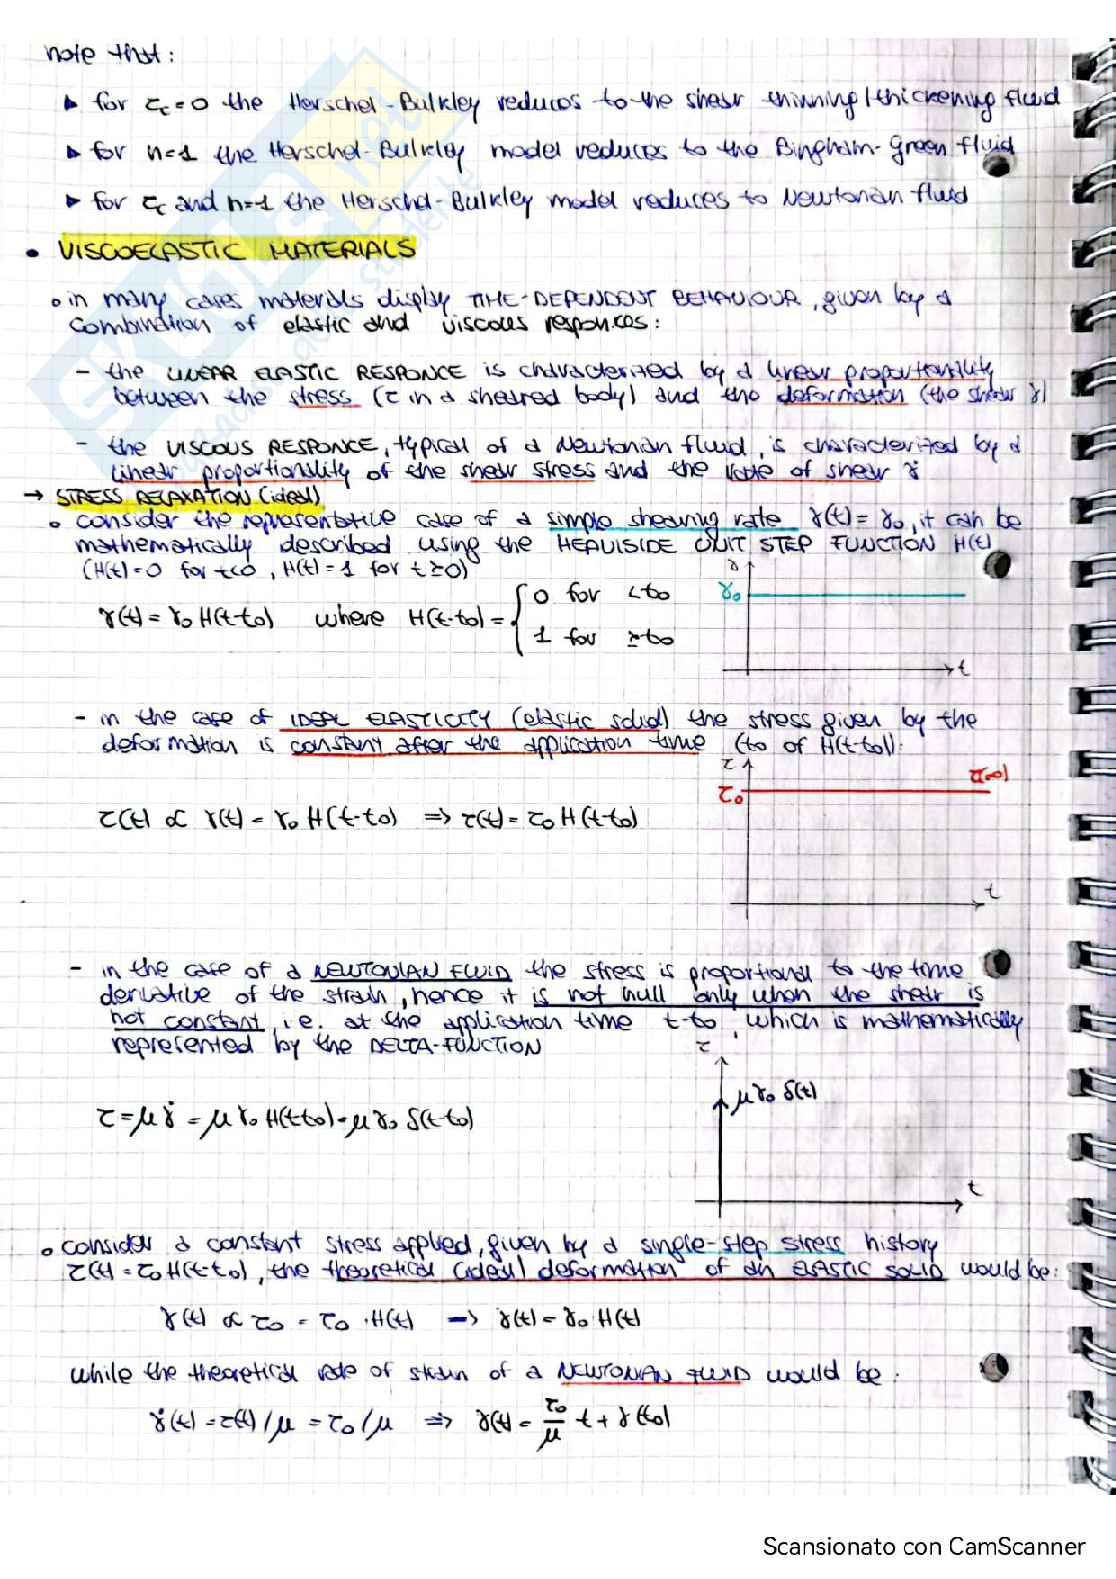 note that:
▸ for τc=0 the Herschel-Bulkley reduces to the shear thinning/thickening fluid
▸ for n=1 the Herschel-Bulkley model reduces to the Bingham-Green fluid
▸ for τc and n=1 the Herschel-Bulkley model reduces to Newtonian fluid
• VISCOELASTIC MATERIALS
∘ in many cases materials display TIME-DEPENDENT BEHAVIOUR, given by a
combination of elastic and viscous responces:
- the LINEAR ELASTIC RESPONCE is characterized by a linear proportionality
between the stress (τ in a sheared body) and the deformation (the shear γ)
- the VISCOUS RESPONCE, typical of a Newtonian fluid, is characterized by a
linear proportionality of the shear stress and the rate of shear γ̇
→ STRESS RELAXATION (ideal)
∘ consider the representative case of a simple shearing rate γ(t)=γ₀, it can be
mathematically described using the HEAVISIDE UNIT STEP FUNCTION H(t)
(H(t)=0 for t<0, H(t)=1 for t≥0)
γ
γ₀
t
γ(t)=γ₀H(t-t₀) where H(t-t₀)= { 0 for <t₀
1 for ≥t₀
- in the case of IDEAL ELASTICITY (elastic solid) the stress given by the
deformation is constant after the application time (t₀ of H(t-t₀)).
τ
τ₀
τ(∞)
t
τ(t) ∝ γ(t) = γ₀ H(t-t₀) ⇒ τ(t)= τ₀ H(t-t₀)
- in the case of a NEWTONIAN FLUID the stress is proportional to the time
derivative of the strain, hence it is not null only when the shear is
not constant, i.e. at the application time t-t₀, which is mathematically
represented by the DELTA-FUNCTION
τ
μγ₀ δ(t)
t
τ=μγ̇ = μγ₀ H(t-t₀)=μγ₀ δ(t-t₀)
∘ consider a constant stress applied, given by a single-step stress history
τ(t)=τ₀H(t-t₀), the theoretical (ideal) deformation of an ELASTIC SOLID would be:
γ(t) ∝ τ₀ = τ₀ ·H(t) → γ(t)=γ₀·H(t)
while the theoretical rate of strain of a NEWTONIAN FLUID would be:
γ̇(t)=τ(t)/μ = τ₀/μ ⇒ γ(t)= τ₀/μ t+γ(t₀)
Scansionato con CamScanner